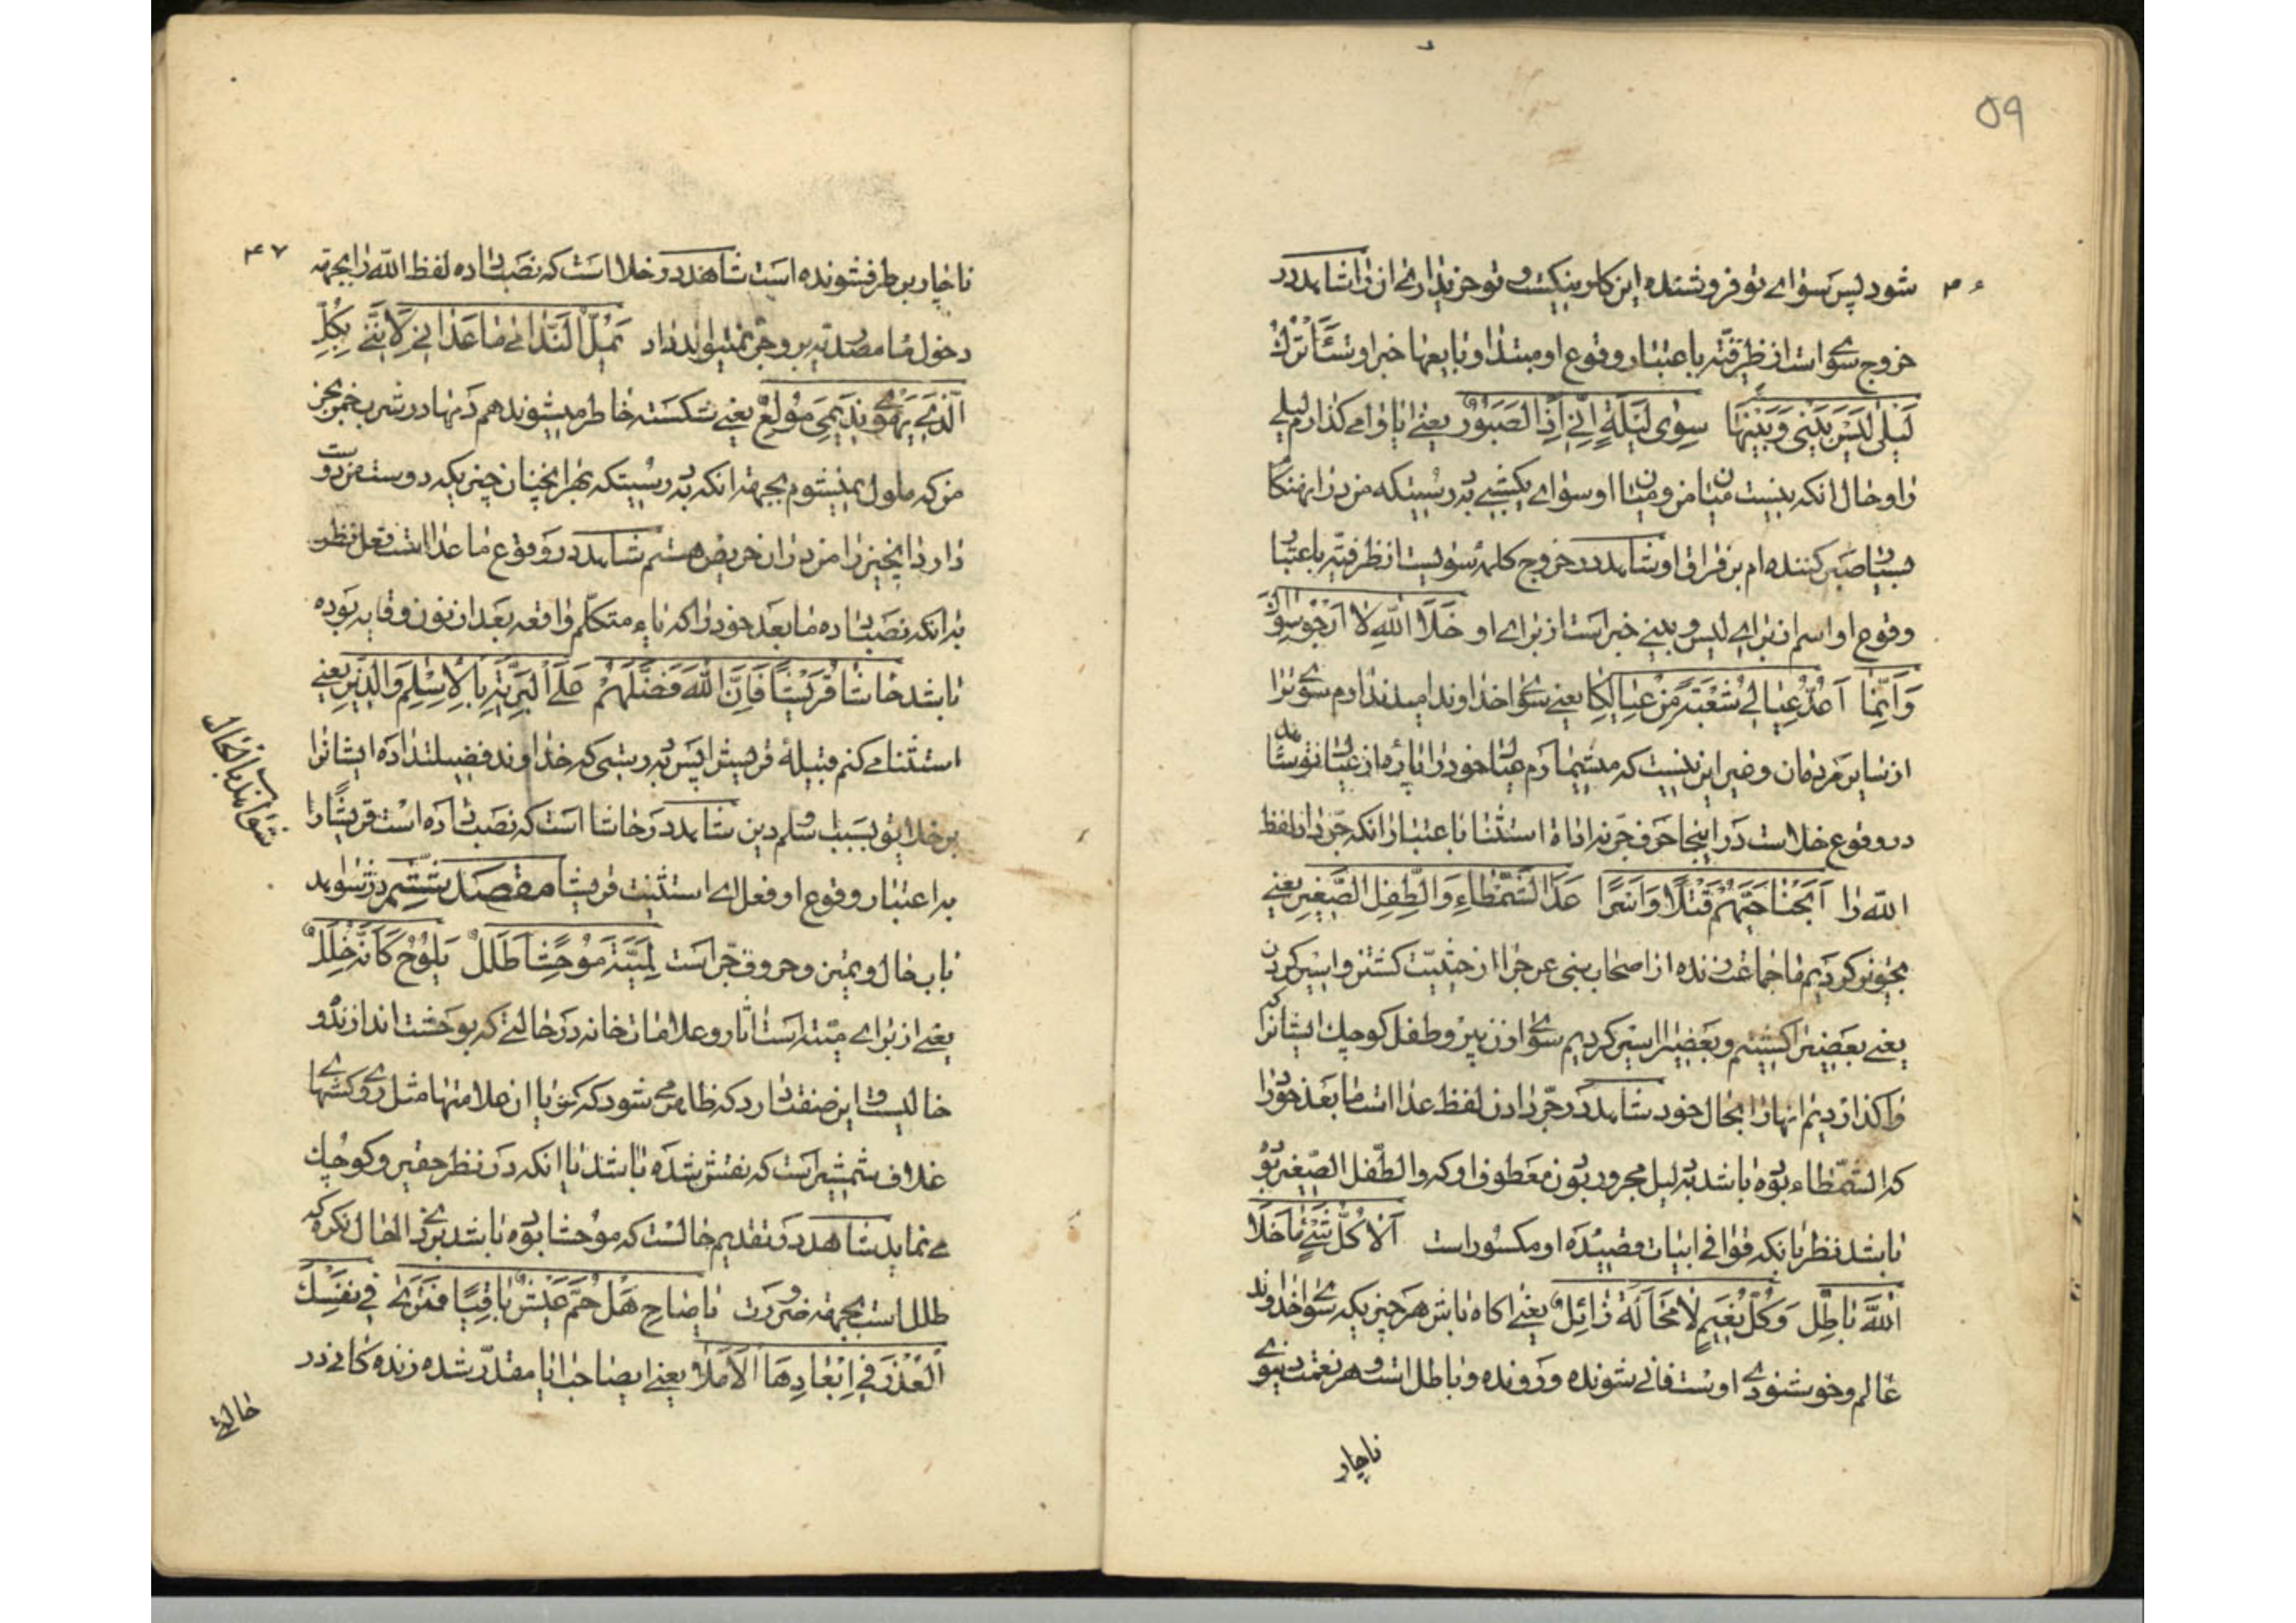 ۵۹
شود پس سوای تو فروشنده این کار نیکست و تو خرنده آن شاهد در
خروج سوی است از ظرفیّة باعتبار وقوع او مبتدا و بایعها خبر او ءَاَتْرُكُ
لَيْلٰى لَيْسَ بَيْنِى وَبَيْنَهَا سِوٰى لَيْلَةٍ اِنِّى اِذًا لَصَبُورٌ یعنی ایا وامی‌گذارم لیلی
را و حال انکه نیست میان من و میان او سوای یکشبی بدرستیکه من در اینهنگام
بسیار صبر کننده‌ام بر فراق او شاهد در خروج کلمهٔ سوی است از ظرفیّه باعتبار
وقوع او اسم از برای لیس و بینی خبر است از برای او خَلَا اللّٰهِ لَا اَرْجُو سِوَاكَ
وَاِنَّمَا اَعُدُّ عِيَالِى شُعْبَةً مِنْ عِيَالِكَا یعنی سوای خداوند امید ندارم سوی ترا
از سایر مردمان و غیر این نیست که میشمارم عیال خود را پاره از عیال تو شاهد
در وقوع خلاست در اینجا حرف جر نه اداة استثنا باعتبار انکه جر داده لفظ
اللّه را اَبَحْنَا حَيَّهُمْ قَتْلًا وَاَسْرًا عَدَا الشَّمْطَاءِ وَالطِّفْلِ الصَّغِيرِ یعنی
کردیم ما جماعت زنده از اصحاب بنی را از حیثیّت کشتن و اسیر کردن
یعنی بعضی را کشتیم و بعضی را اسیر کردیم سوای زن پیر و طفل کوچک که ایشانرا
واگذاردیم انها را بحال خود شاهد در جرّ دادن لفظ عدا است ما بعد خود را
که الشّمطاء بوده باشد بدلیل مجرور بودن معطوف او که والطّفل الصّغیر بوده
باشد نظر بانکه قوافی ابیات قصیده او مکسور است اَلَا كُلُّ شَىْءٍ مَا خَلَا
اللّٰهَ بَاطِلٌ وَكُلُّ نَعِيمٍ لَا مَحَالَةَ زَائِلٌ یعنی اکاه باش هر چیزیکه سوای خداوند
عالم و خوشنودی اوست فانی شونده و رونده و باطل است و هر نعمت دنیوی
ناچار
۴۷
ناچار بر طرف شونده است شاهد در خلا است که نصب داده لفظ اللّه را بجهة
دخول ما مصدریّه بر و جر نمیتواند داد تُمَلُّ النَّدَامٰى مَا عَدَانِى لِاَنَّنِى بِكُلِّ
الَّذِى يَهْوٰى نَدِيمِى مُولَعٌ یعنی شکسته خاطر میشوند هم دمها در شرب خمر بجز
من که ملول نمیشوم بجهة انکه بدرستیکه بهر انچنان چیزیکه دوست من دوست
دارد انچیز را من در ان حریص هستم شاهد در وقوع ما عدا است فعل نظر
به انکه نصب داده ما بعد خود را که یاء متکلّم واقعه بعد از نون وقایه بوده
باشد حَاشَا قُرَيْشًا فَاِنَّ اللّٰهَ فَضَّلَهُمْ عَلَى الْبَرِيَّةِ بِالْاِسْلٰمِ وَالدِّينِ یعنی
استثنا می کنم قبیلهٔ قریش را پس بدرستی که خداوند فضیلت داده ایشانرا
بر خلایق بسبب اسلام و دین شاهد در حاشا است که نصب داده است قریشًا را
به اعتبار وقوع او فعل ای استثنیت قریشا مقصد ششم در شواهد
باب حال و تمیز و حروف جرّ است لِمَيَّةَ مُوحِشًا طَلَلٌ يَلُوحُ كَاَنَّهُ خِلَلٌ
شواهد باب الحال
یعنی از برای میّة است اثار و علامات خانه در حالتی که بوحشت اندازنده و
خالیست و این صفت دارد که ظاهر می شود که کویا ان علامتها مثل روکشهای
غلاف شمشیر است که نقش شده باشد یا انکه در نظر حقیر و کوچک
می نماید شاهد در تقدیم حالست که موحشا بوده باشد بر ذی الحال نکره که
طلل است بجهة ضرورت يَا صَاحِ هَلْ حُمَّ عَيْشٌ بَاقِيًا فَتَرٰى فِى نَفْسِكَ
الْعُذْرَ فِى اِبْعَادِهَا الْاَمَلَا یعنی ایصاحب ایا مقدّر شده زنده کانی در
حالتی